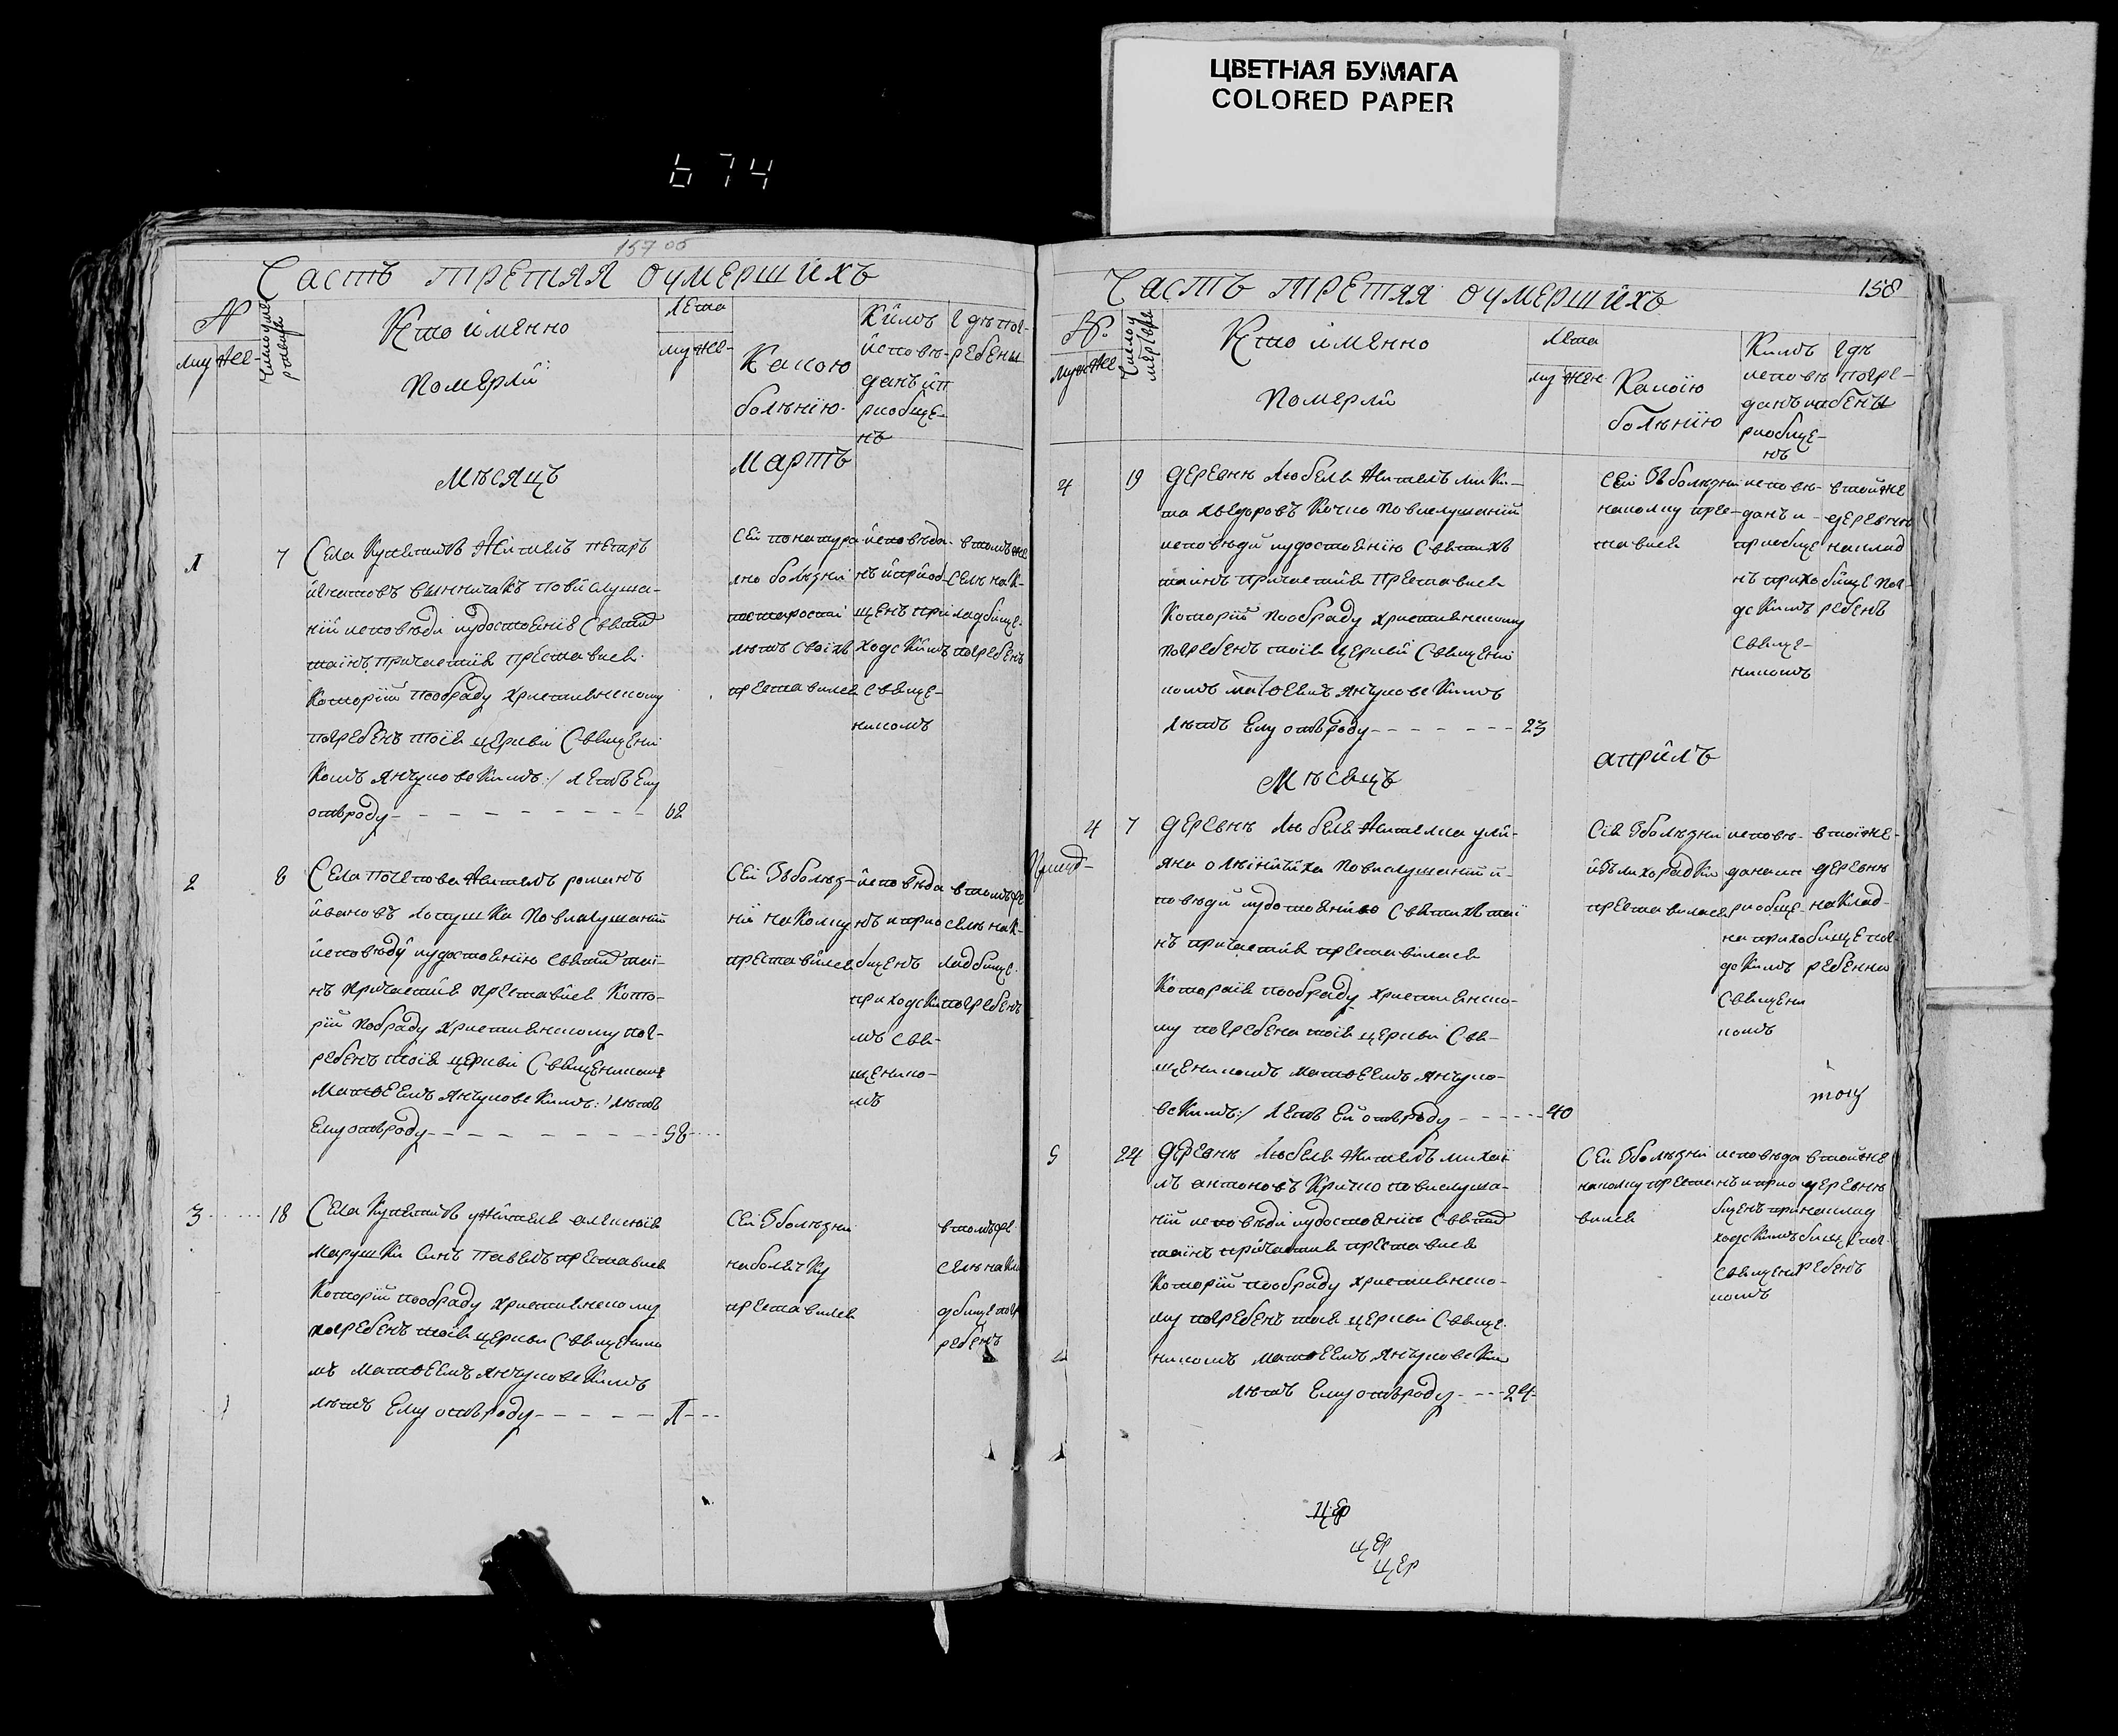 ЦВЕТНАЯ БУМАГА
COLORED PAPER
674
157 об
Часть третяя оумершихъ
№
Кто именно
померли
Лета
му же-
Какою
болѣнїю
Кимъ
исповѣ-
данъ и п
риобще-
нъ
где пог-
ребены
Мѣсяцъ
Мартъ
1
7
Села Жителъ петръ
повислуша-
нїй исповѣди иудостоенїе Святих
таинъ причастия преставися
Которїй пообраду християнскому
погребенъ тоїя церкви Священи
комъ Янчуковскимъ :/ летъ Ему
отъроду
62
Сей понатура
лно болѣзни
постарости
лѣтъ своїхъ
преставился
исповѣда-
нъ и приоб-
щенъ при
ходскимъ
свяще-
никомъ
втомъ же
селѣ на к-
ладбище
погребенъ
2
8
Села Жителъ романъ
ивановъ повислушаний
исповѣду иудостоенїю святих таї-
нъ причастия преставися Кото-
рїй пообраду християнскому пог-
ребенъ тоїя церкви Священикомъ
Матѳеемъ Янчуковскимъ :/ лѣтъ
Ему отъроду
58
Сей Зъ болѣз-
ни на Колку
преставился
исповѣда
нъ и прио
бщенъ
приходски
мъ свя-
щенико-
мъ
втомъ же
селѣ на к-
ладбище
погребенъ
3
18
Села Жителя алексїя
Марушки Синъ Павелъ преставися
Которїй пообраду християнскому
погребенъ тоїя церкви Священико
мъ Матѳеемъ Янчуковскимъ
лѣтъ Ему отъроду
1
Сей З болѣзни
на болячку
преставился
втомъ же
селѣ на кла
дбище пог
ребенъ
Часть третяя оумершихъ
158
№.
Число у
мершїх
Кто именно
померли
Лета
му жен
Какоїю
болѣнїю
Кимъ
исповѣ
данъ ип
риобще-
нъ
гдѣ
погре-
бены
4
19
Деревнѣ Любеля Жителъ Мики-
та Ѳведоровъ Кочко повислушанїй
исповѣди иудостоенїю Святихъ
таинъ причастия преставися
Которїй пообраду християнскому
погребенъ тоїя церкви Священи
комъ Матѳеемъ Янчуковскимъ
лѣтъ Ему отъроду
23
Сей Зъ болѣзни
на колку пре-
ставися
исповѣ-
данъ и
приобще
нъ прихо
дскимъ
свяще-
никомъ
втой же
деревнѣ
на клад
бище пог-
ребенъ
Мѣсяцъ
априлъ
4
7
Деревнѣ Любеля Жителка ули-
яна олѣйничиха повислушанїй и-
повѣди иудостоенїю Святихъ таї
нъ причастия преставилася
Котораїя пообраду християнско-
му погребена тоїя церкви Свя-
щеникомъ Матѳеемъ Янчуко-
вскимъ :/ летъ Ей отъроду
40
Сїя З болѣзни
изъ лихорадки
преставилася
исповѣ-
дана и п
риобще-
на прихо
дскимъ
Священи
комъ
втоїже-
деревнѣ
на клад-
бище пог-
ребенна
тощ
5
24
Деревнѣ Любеля Жителъ михаї
лъ антоновъ Кричко повислуша-
нїй исповѣди иудостоенїю Святих
таинъ причастия преставися
Которїй пообраду християнско-
му погребенъ тоїя церкви Свяще-
никомъ Матѳеемъ Янчуковским
лѣтъ Ему отъроду
24
Сей З болѣзни
на колку преста
вился
исповѣда
нъ и прио
бщенъ при
ходскимъ
священи
комъ
втой же
деревнѣ
на клад
бище пог-
ребенъ
цер
цер
цер